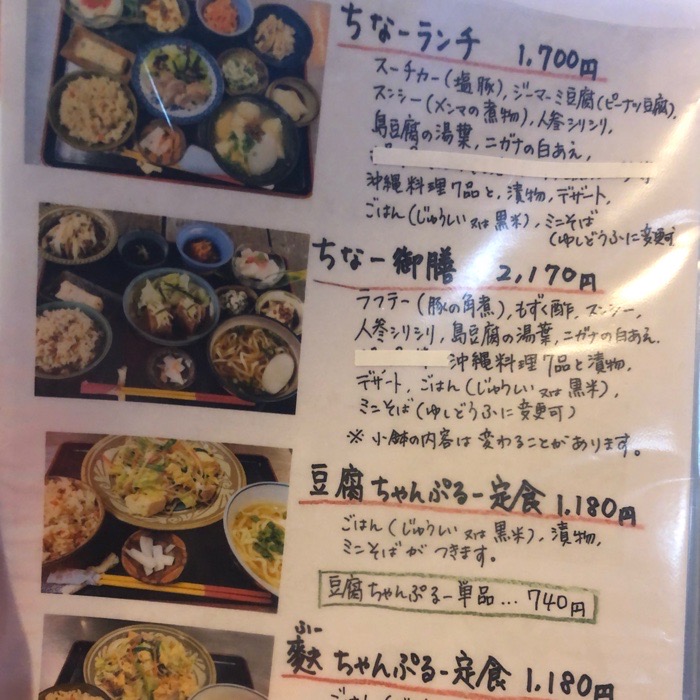 ちなーランチ 1,700円
スーチカー(塩豚), ジーマーミ豆腐(ピーナッツ豆腐),
スンシー(メンマの煮物), 人参シリシリ,
島豆腐の湯葉, ニガナの白あえ,
沖縄料理7品と, 漬物, デザート,
ごはん(じゅうしぃ又は黒米), ミニそば
(ゆしどうふに変更可
ちなー御膳 2,170円
ラフテー(豚の角煮), もずく酢, スンシー,
人参シリシリ, 島豆腐の湯葉, ニガナの白あえ.
沖縄料理7品と漬物,
デザート, ごはん(じゅうしい又は黒米),
ミニそば(ゆしどうふに変更可)
※小鉢の内容は変わることがあります。
豆腐ちゃんぷるー定食 1,180円
ごはん(じゅうしい又は黒米), 漬物,
ミニそばがつきます。
豆腐ちゃんぷるー単品... 740円
ふー
麩ちゃんぷるー定食 1,180円